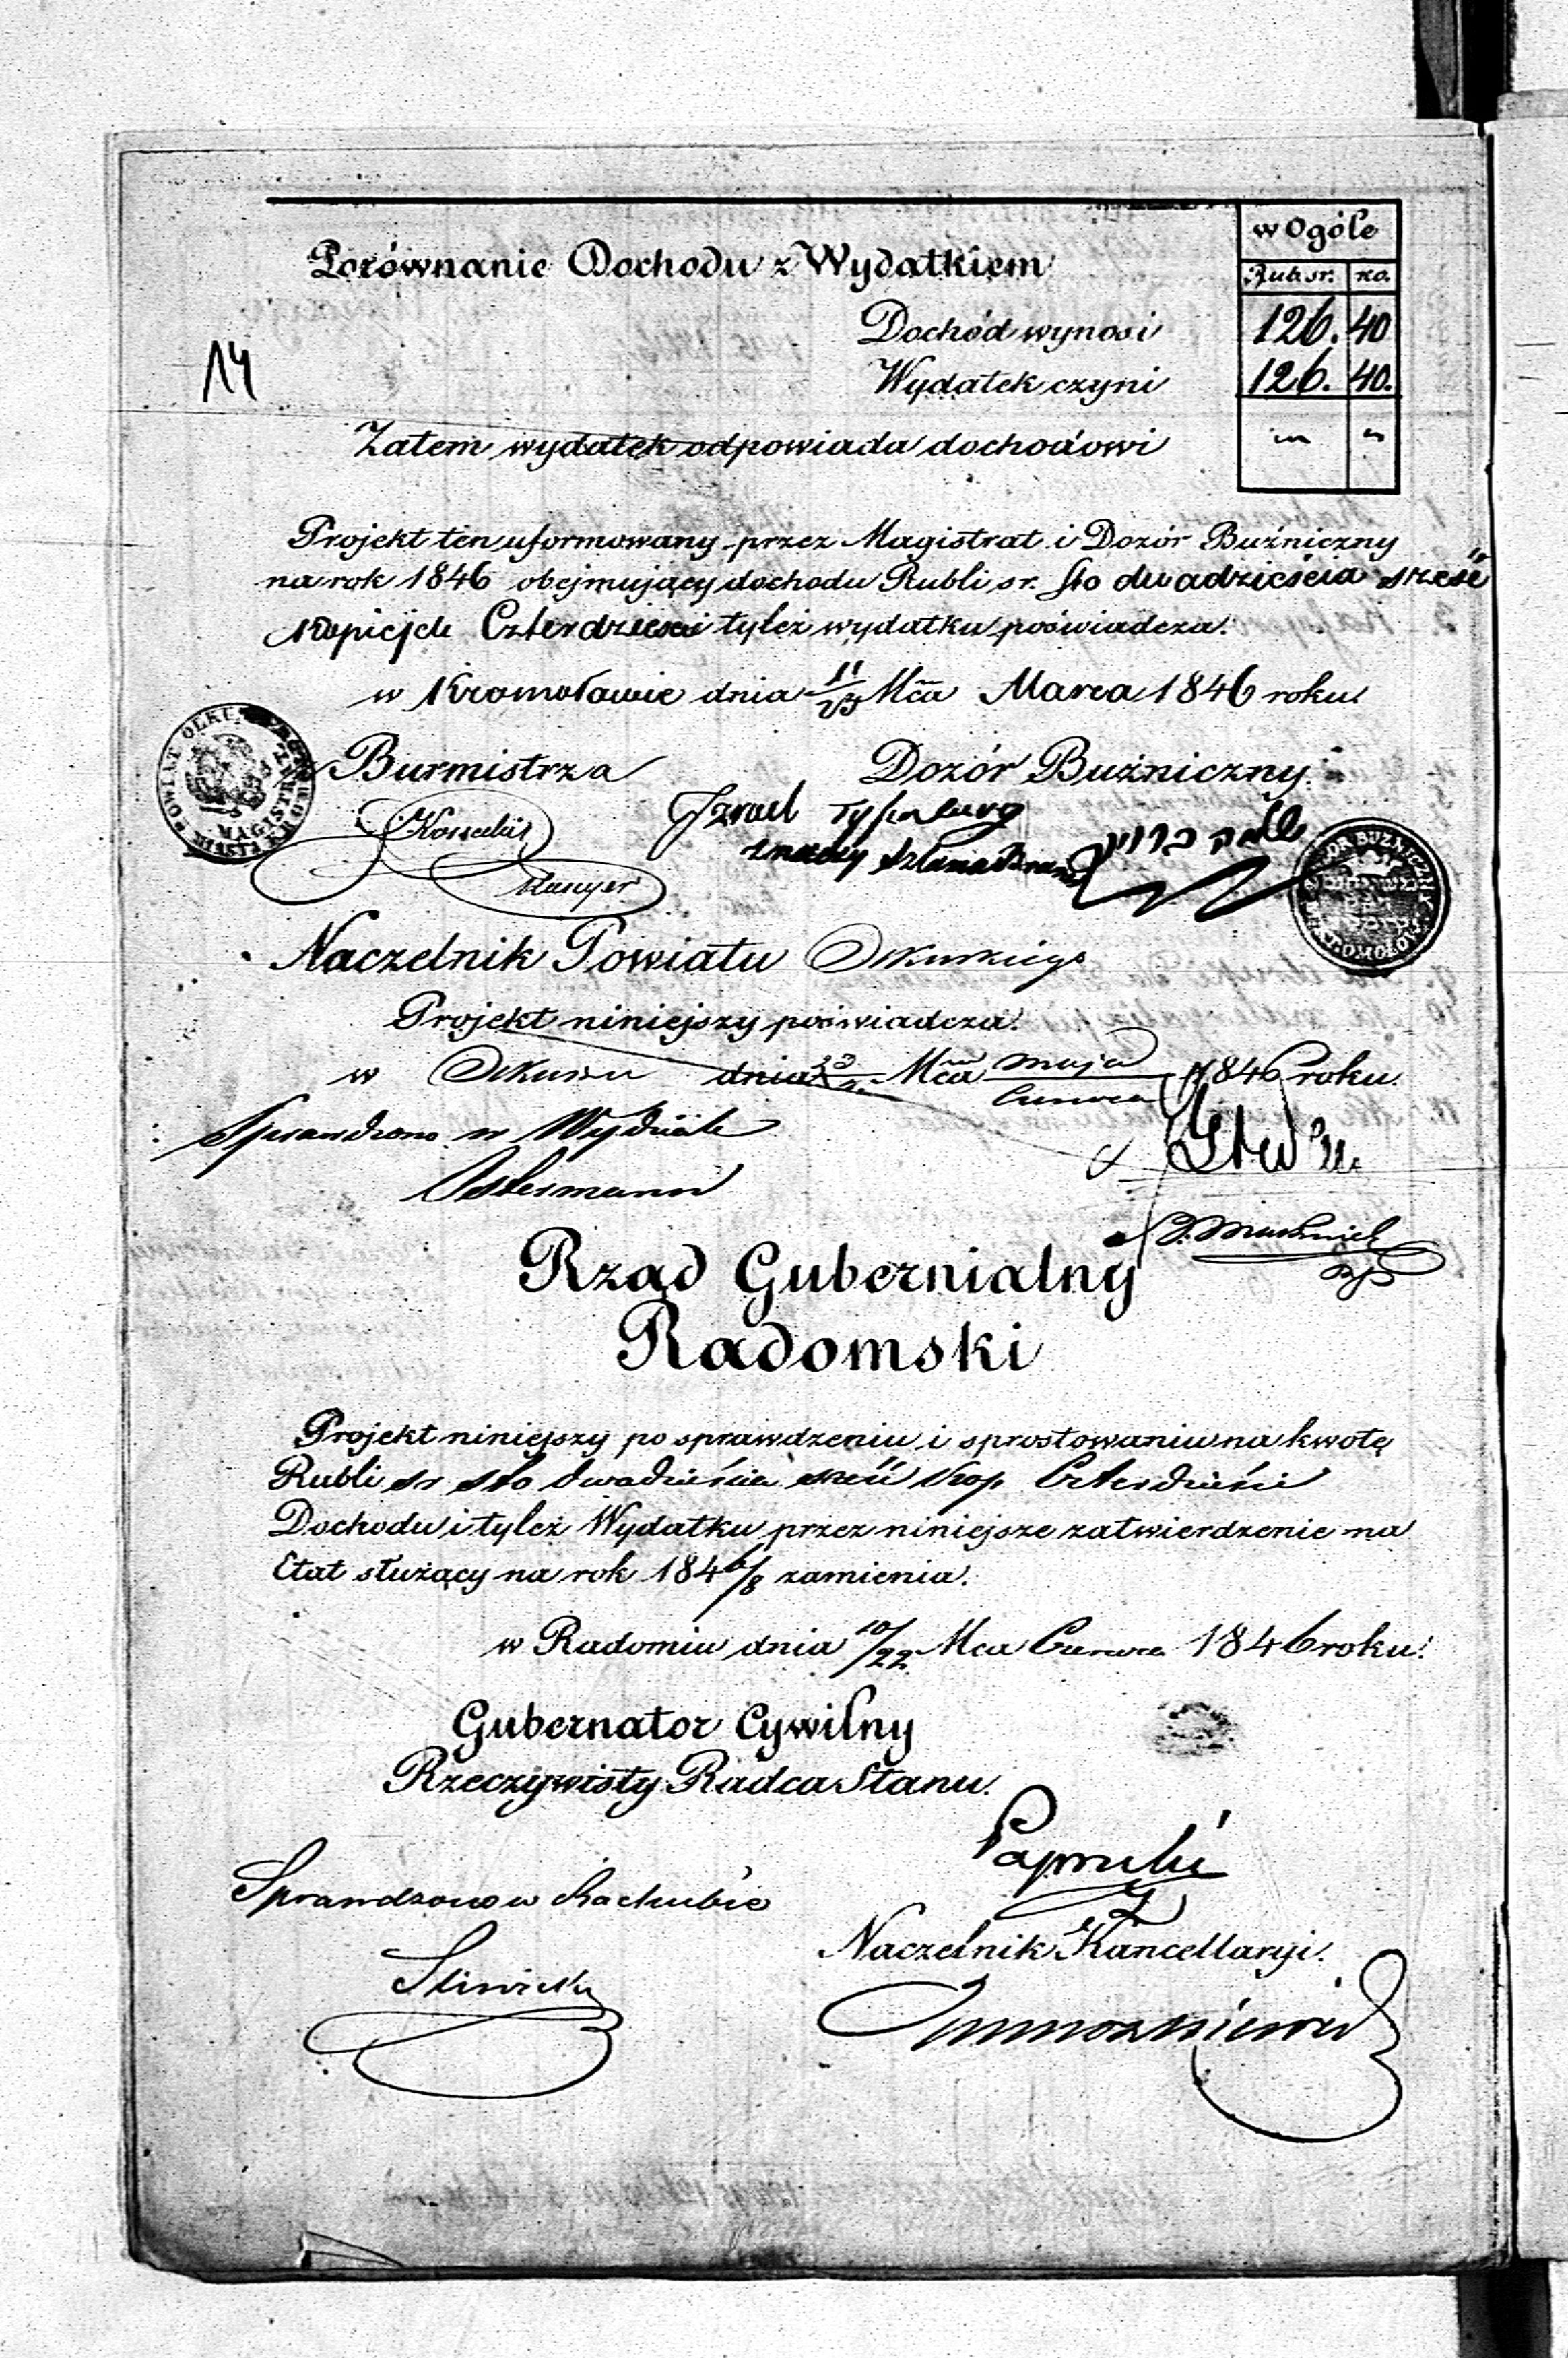 w Ogóle
Porównanie Dochodu z Wydatkiem
Rub. sr. ko.
Dochód wynosi 126. 40
14
Wydatek czyni 126. 40.
Zatem wydatek odpowiada dochodowi
Projekt ten uformowany przez Magistrat i Dozór Bużniczny
na rok 1846 obejmujący dochodu Rubli sr. sto dwadzieścia sześć
kopiejek Czterdzieści tyleż wydatku poświadcza.
w Kromołowie dnia 11/23 Mca Marca 1846 roku.
Burmistrz Dozór Bużniczny
Izrael
Naczelnik Powiatu Olkuskiego
Projekt niniejszy poświadcza.
w Olkuszu dnia Mca Maja/Czerwca 1846 roku.
Sprawdzono w Wydziale
Ostermann
Rząd Gubernialny
Radomski
Projekt niniejszy po sprawdzeniu i sprostowaniu na kwotę
Rubli sr sto dwadzieścia sześć kop Czterdzieści
Dochodu i tyleż Wydatku przez niniejsze zatwierdzenie na
Etat służący na rok 1846/8 zamienia.
w Radomiu dnia 10/22 Mca Czerwca 1846 roku.
Gubernator Cywilny
Rzeczywisty Radca Stanu.
Sprawdzono w Rachubie
Naczelnik Kancellaryi.
Śliwicki